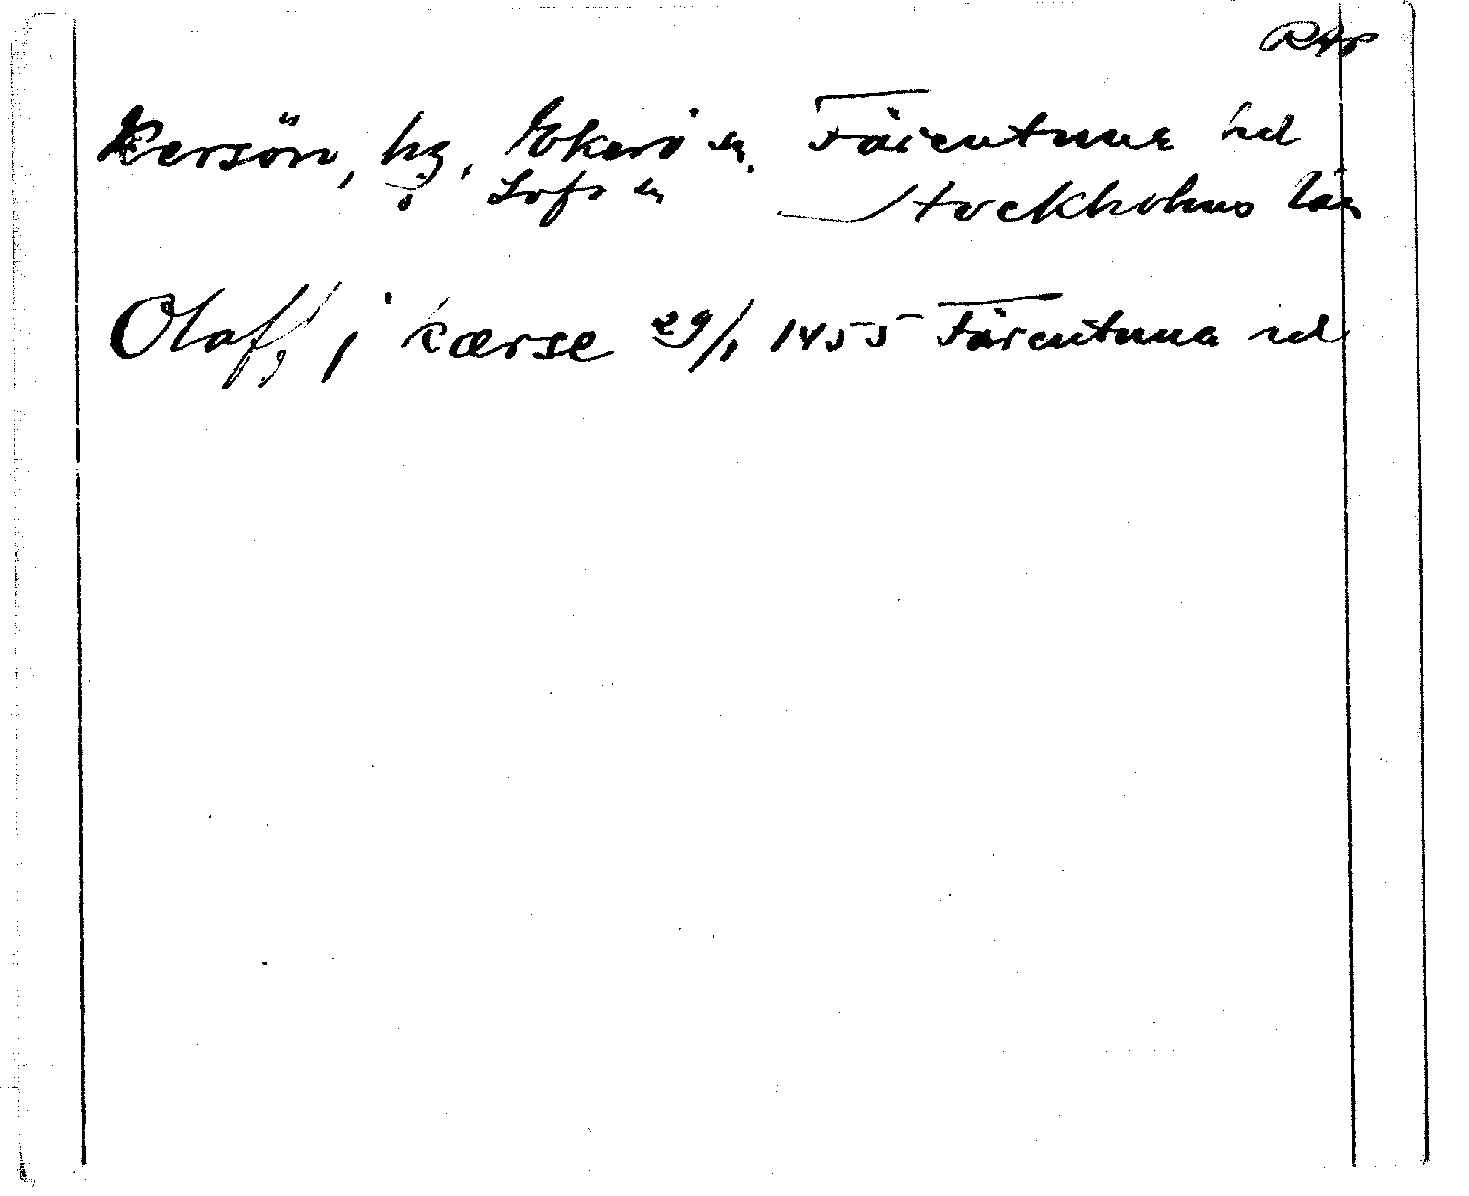 Kersön, hg, Ekerö sn, Färentuna hd
Lofö sn Stockholms län
Olaff, i kærse 29/1 1455 Färentuna hd